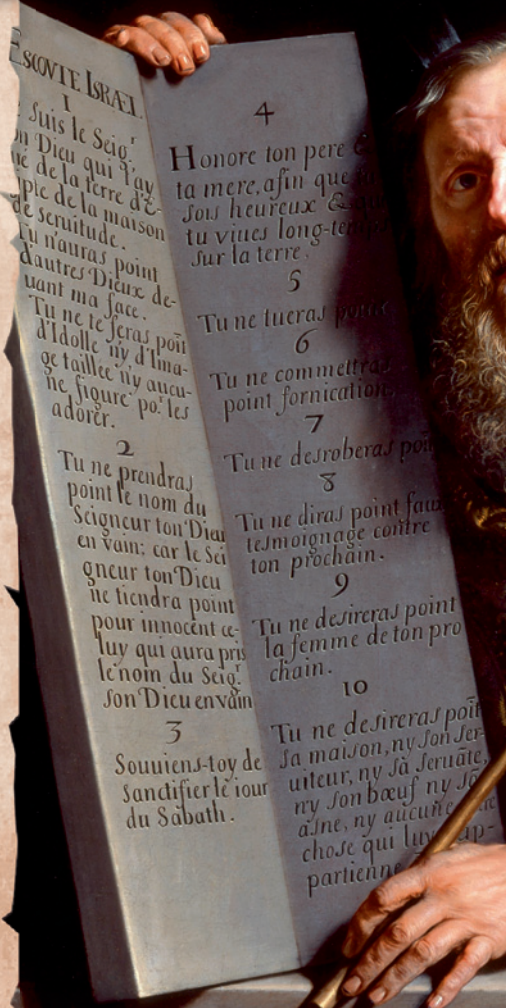 ESCOVTE ISRAEL
1
Suis le Seig.r
Dieu qui t'ay
de la terre d'E-
de la maison
de seruitude.
Tu n'auras point
d'autres Dieux de-
uant ma face.
Tu ne te feras poīt
d'Idolle ny d'Ima-
ge taillee ny aucu-
ne figure po.r les
adorer.
2
Tu ne prendras
point le nom du
Seigneur ton Dieu
en vain; car le Sei
gneur ton Dieu
ne tiendra point
pour innocent ce-
luy qui aura pris
le nom du Seig.r
son Dieu en vain
3
Souuiens-toy de
sanctifier le iour
du Sabath.
4
Honore ton pere &
ta mere, afin que
sois heureux &
tu viues long-temps
sur la terre.
5
Tu ne tueras point
6
Tu ne commettras
point fornication
7
Tu ne desroberas
8
Tu ne diras point faux
tesmoignage contre
ton prochain.
9
Tu ne desireras point
la femme de ton pro
chain.
10
Tu ne desireras poīt
sa maison, ny son ser-
uiteur, ny sa seruāte,
ny son bœuf ny sō
asne, ny aucune
chose qui luy ap-
partienne